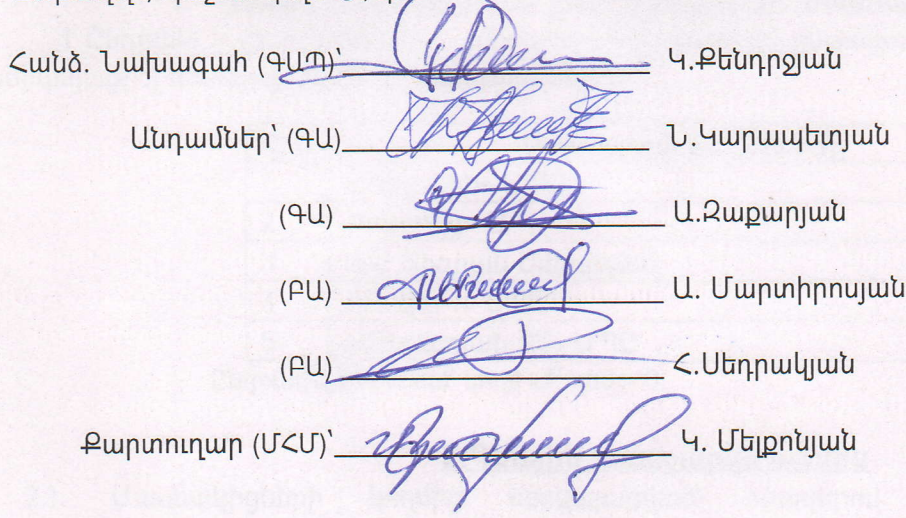 Հանձ. Նախագահ (ԳԱՊ)՝ Կ.Քենդրջյան
Անդամներ՝ (ԳԱ) Ն.Կարապետյան
(ԳԱ) Ա.Զաքարյան
(ԲԱ) Ա. Մարտիրոսյան
(ԲԱ) Հ.Սեդրակյան
Քարտուղար (ՄՀՄ)՝ Կ. Մելքոնյան